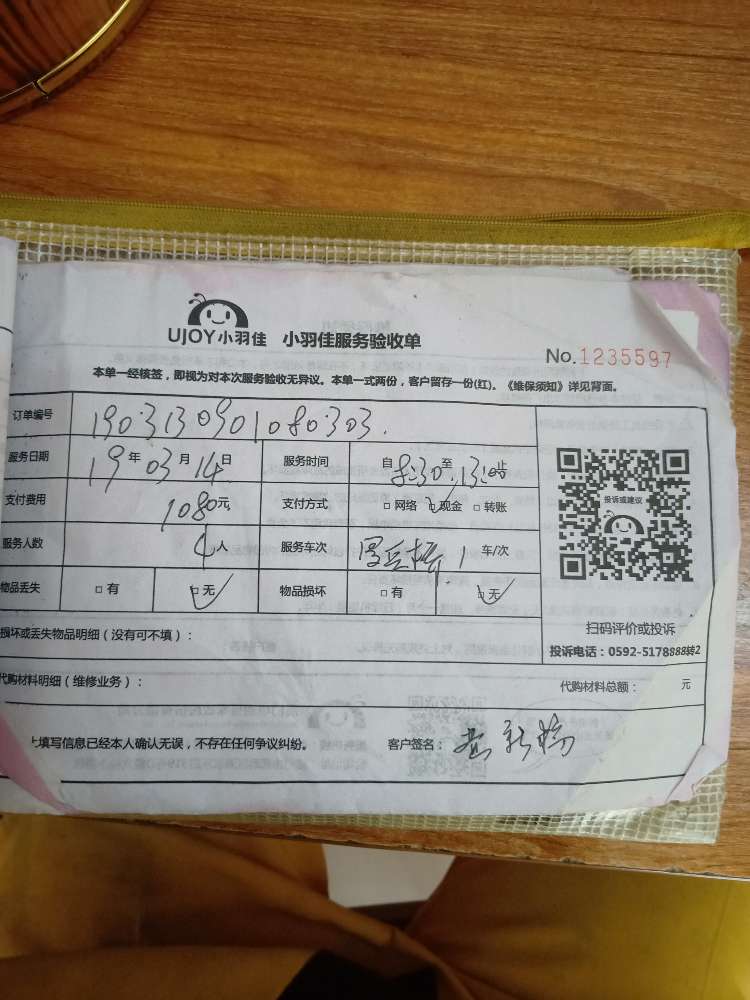 UJOY小羽佳 小羽佳服务验收单
No.1235597
本单一经核签，即视为对本次服务验收无异议。本单一式两份，客户留存一份(红)。《维保须知》详见背面。
订单编号 1903130901080303.
服务日期 19年03月14日 服务时间 自8:30至13:00止
支付费用 1080元 支付方式 □网络 □现金 □转账
服务人数 4人 服务车次 1 车/次
物品丢失 □有 □无 物品损坏 □有 □无
投诉或建议
扫码评价或投诉
投诉电话：0592-5178888转2
损坏或丢失物品明细（没有可不填）：
代购材料明细（维修业务）： 代购材料总额： 元
上填写信息已经本人确认无误，不存在任何争议纠纷。 客户签名：